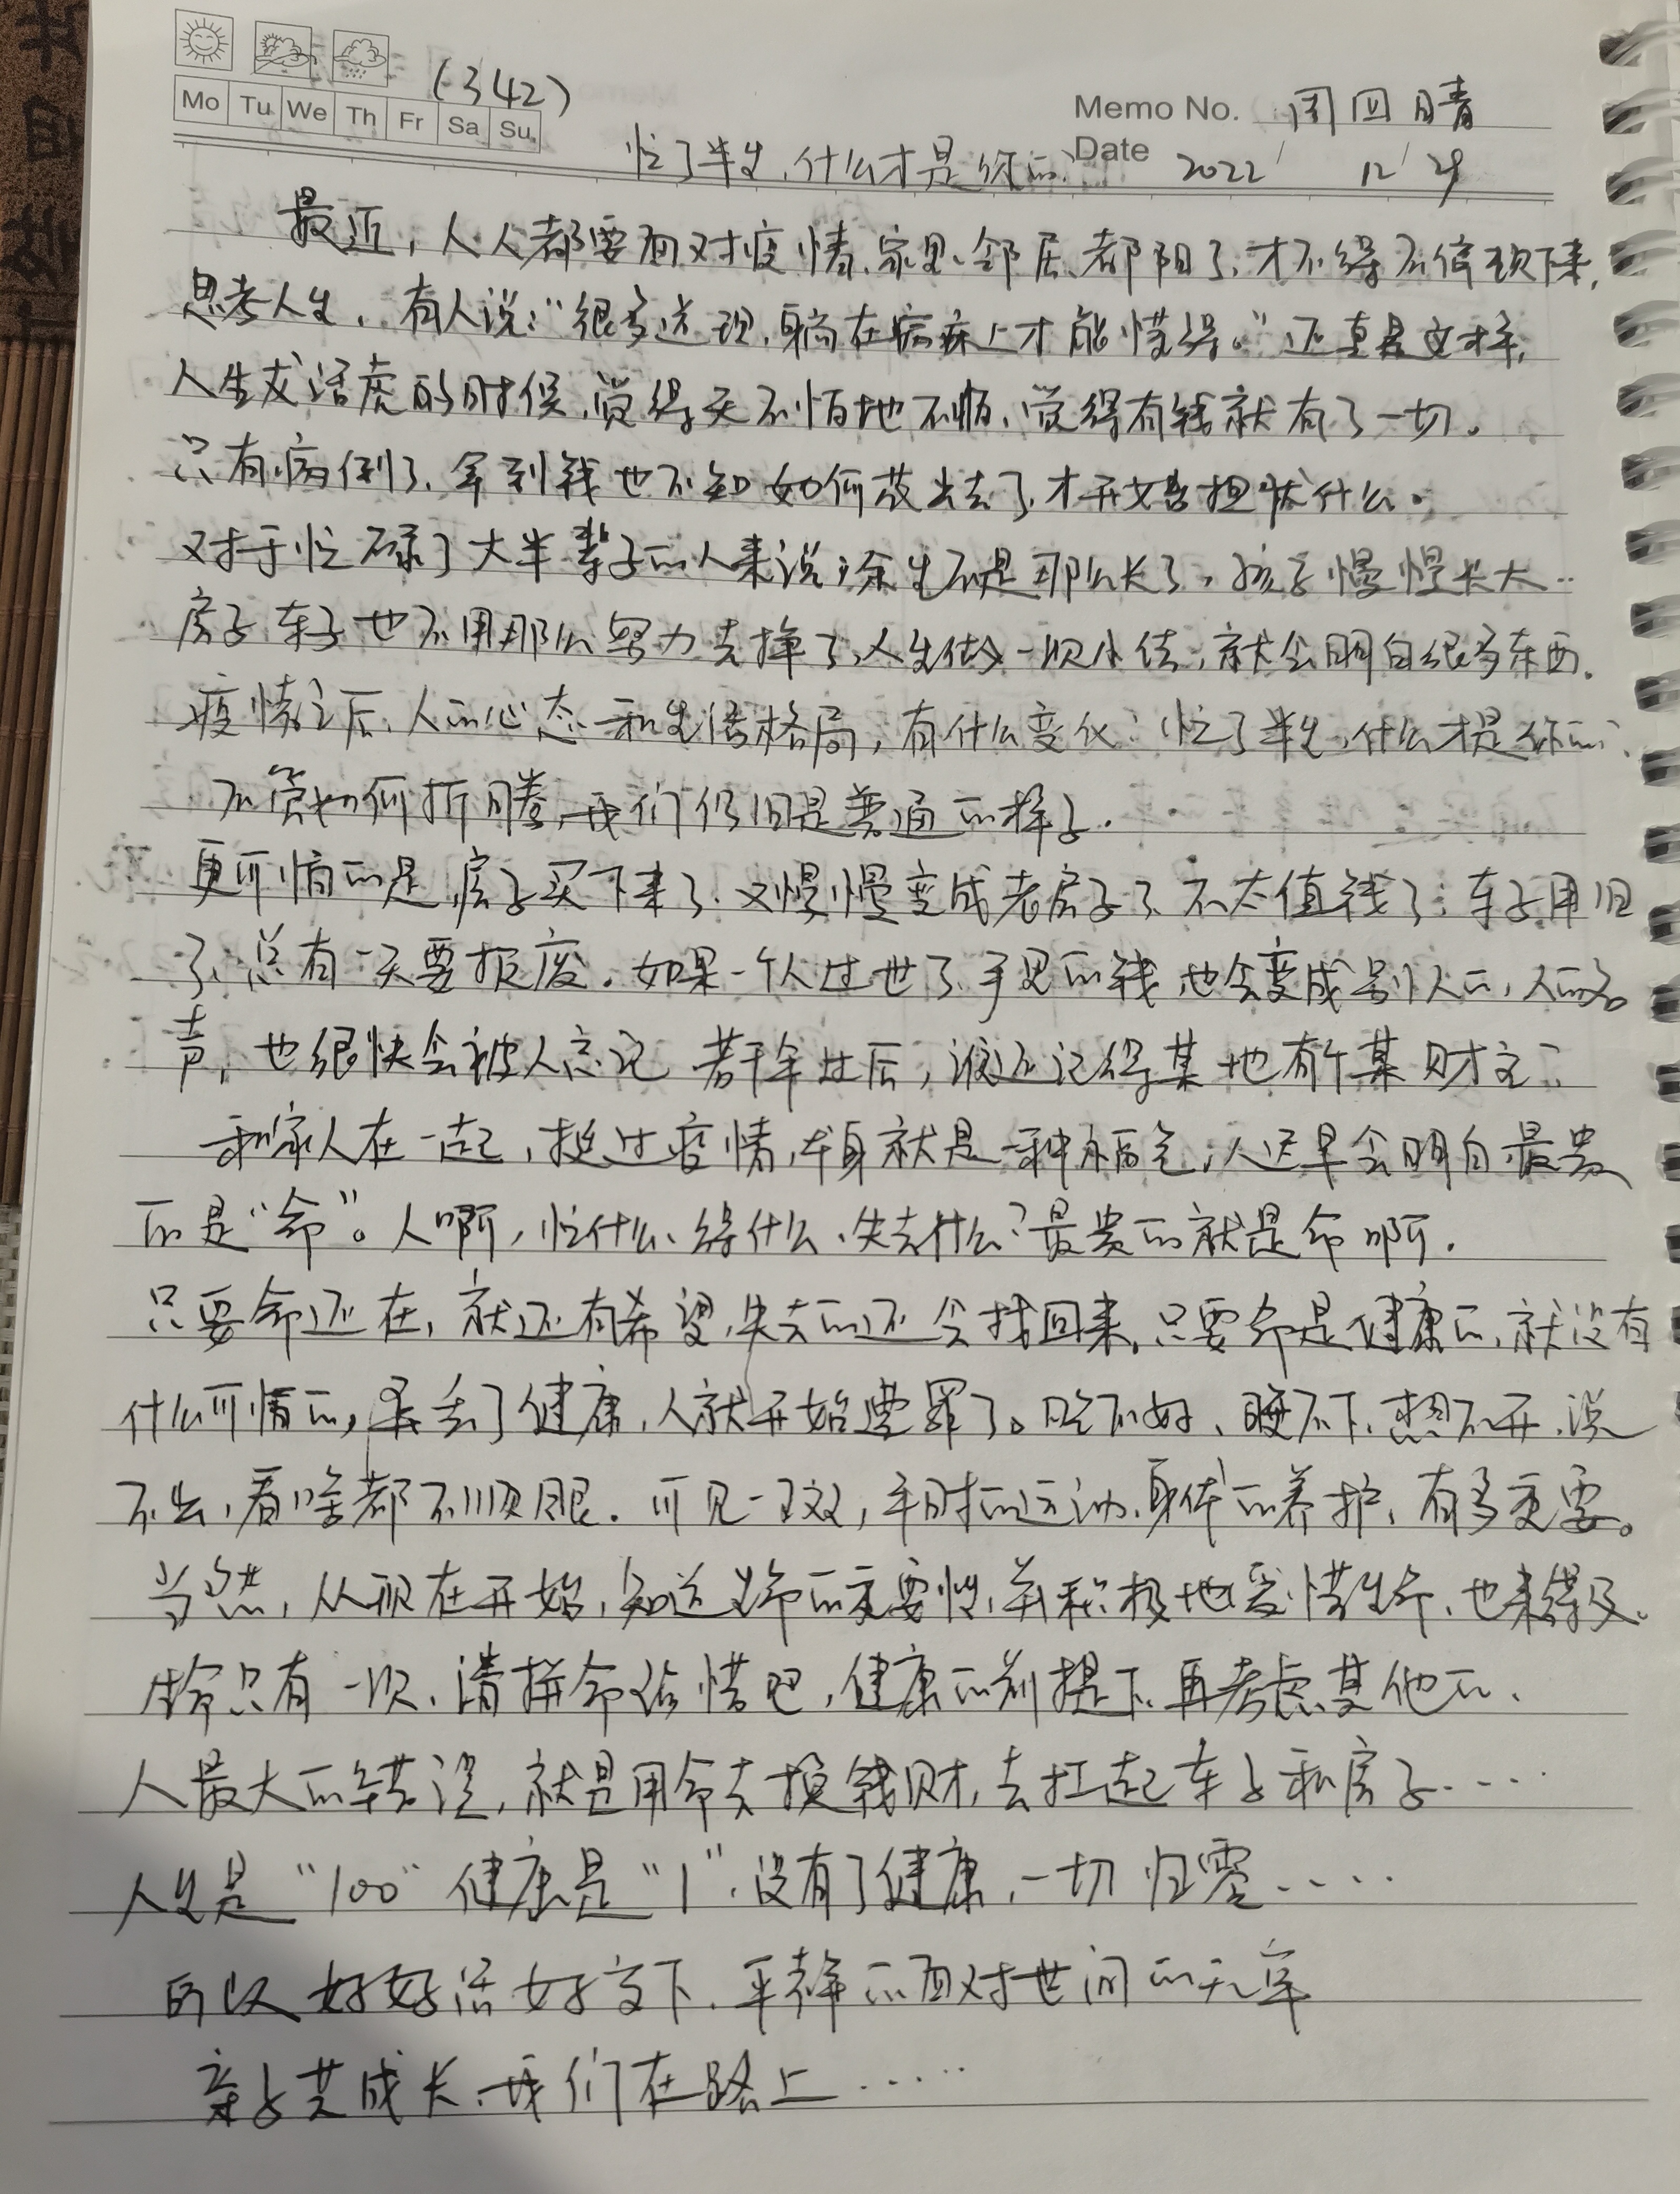 (342)
Mo Tu We Th Fr Sa Su
Memo No. 周四晴
忙了半生,什么才是你的?
Date 2022 12 29
最近,人人都要面对疫情、家里、邻居、都阳了,才不得不停顿下来,
思考人生,有人说:“很多道理,躺在病床上才能懂得。”还真是这样,
人生龙活虎的时候,觉得天不怕地不怕、觉得有钱就有了一切。
只有病倒了、拿到钱也不知如何花出去了,才开始担忧什么。
对于忙碌了大半辈子的人来说,余生不是那么长了,孩子慢慢长大..
房子车子也不用那么努力去挣了,人生做一次小结,就会明白很多东西.
疫情之后,人的心态和生活格局,有什么变化?忙了半生,什么才是你的?
不管如何折腾,我们仍旧是普通的样子.
更可惜的是,房子买下来了,又慢慢变成老房子了,不太值钱了;车子用旧
了,总有一天要报废.如果一个人过世了,手里的钱,也会变成别人的,人的名
声,也很快会被人忘记,若干年过后,谁还记得某地有个某财主?
和家人在一起,挺过疫情,本身就是一种福气;人迟早会明白,最贵
的是“命”。人啊,忙什么、得什么、失去什么?最贵的就是命啊.
只要命还在,就还有希望,失去的还会找回来,只要命是健康的,就没有
什么可惜的,丢了健康,人就开始遭罪了。吃不好、睡不下、想不开、说
不出,看啥都不顺眼.可见一斑,平时的运动、身体的养护,有多重要。
当然,从现在开始,知道生命的重要性,并积极地爱惜生命,也来得及.
生命只有一次,请拼命珍惜吧,健康的前提下,再考虑其他的、
人最大的错误,就是用命去换钱财,去扛起车子和房子....
人生是“100”健康是“1”,没有了健康,一切归零....
所以好好活好当下,平静的面对世间的无常
亲子共成长,我们在路上......